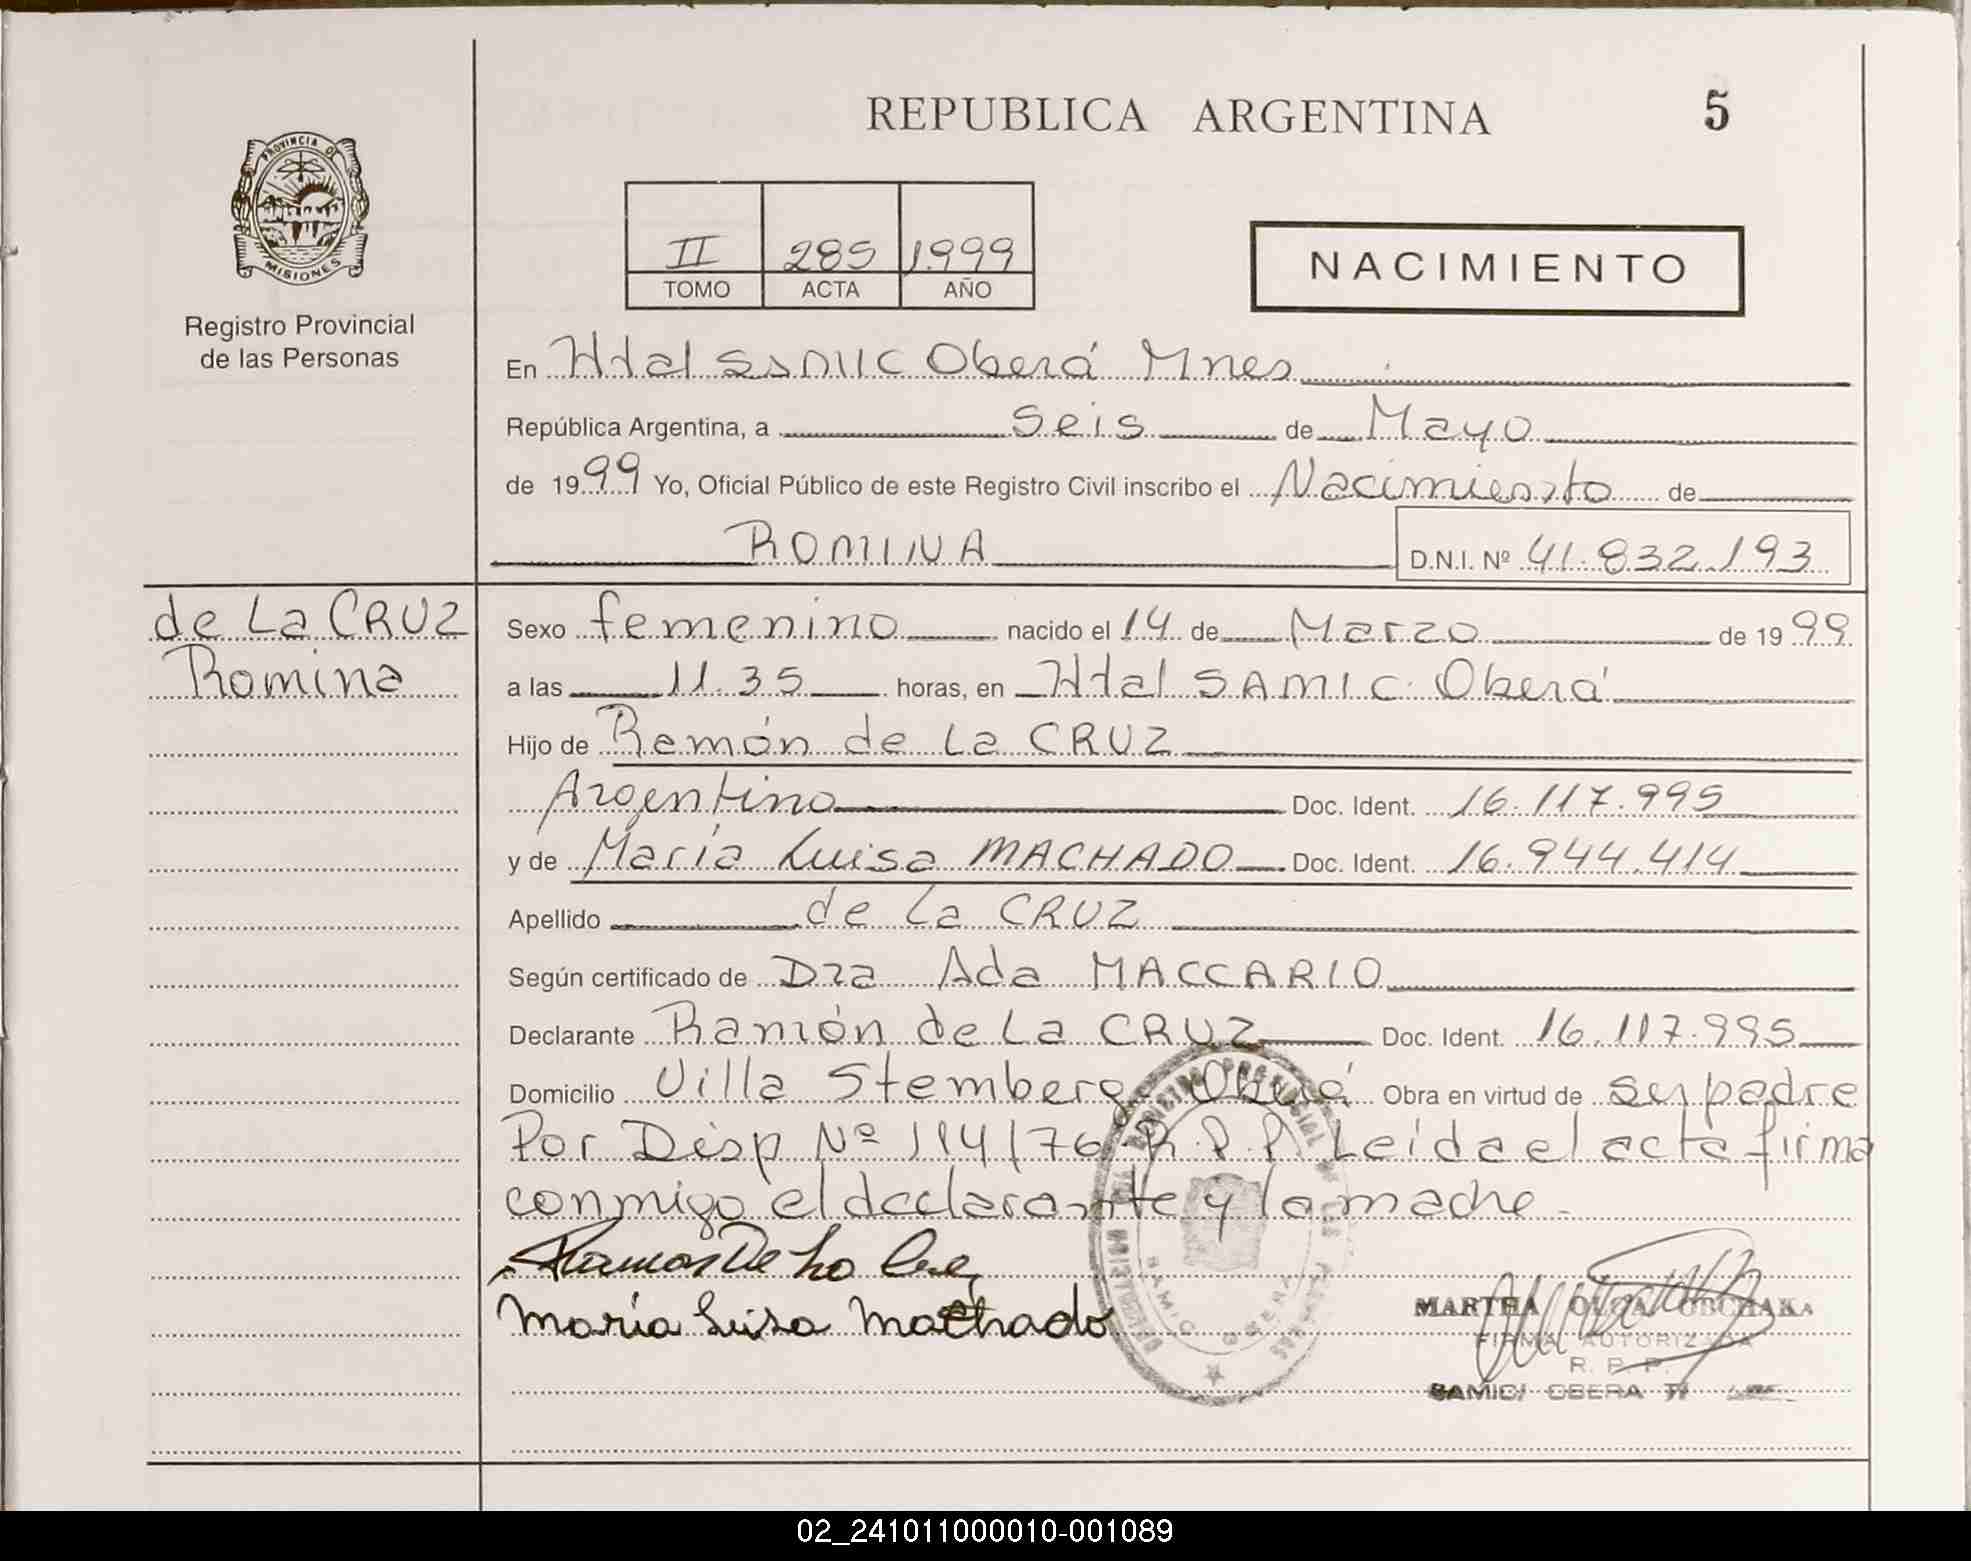 REPUBLICA ARGENTINA
5
PROVINCIA DE
MISIONES
Registro Provincial
de las Personas
II 285 1999
TOMO ACTA AÑO
NACIMIENTO
En Htal SAMIC Oberá Mnes
República Argentina, a Seis de Mayo
de 1999 Yo, Oficial Público de este Registro Civil inscribo el Nacimiento de
ROMINA D.N.I. Nº 41.832.193
de La CRUZ
Romina
Sexo femenino nacido el 14 de Marzo de 1999
a las 11.35 horas, en Htal SAMIC Oberá
Hijo de Ramón de La CRUZ
Argentino Doc. Ident. 16.117.995
y de María Luisa MACHADO Doc. Ident. 16.944.414
Apellido de La CRUZ
Según certificado de Dra Ada MACCARIO
Declarante Ramón de La CRUZ Doc. Ident. 16.117.995
Domicilio Villa Stemberg Oberá Obra en virtud de su padre
Por Disp Nº 114/76 R.P.P. Leída el acta firma
conmigo el declarante y la madre.
Ramon De La Cruz
María Luisa Machado
REGISTRO PROVINCIAL DE LAS PERSONAS
SAMIC OBERA
MARTHA OLGA
FIRMA AUTORIZADA
R. P. P.
SAMIC OBERA
02_241011000010-001089